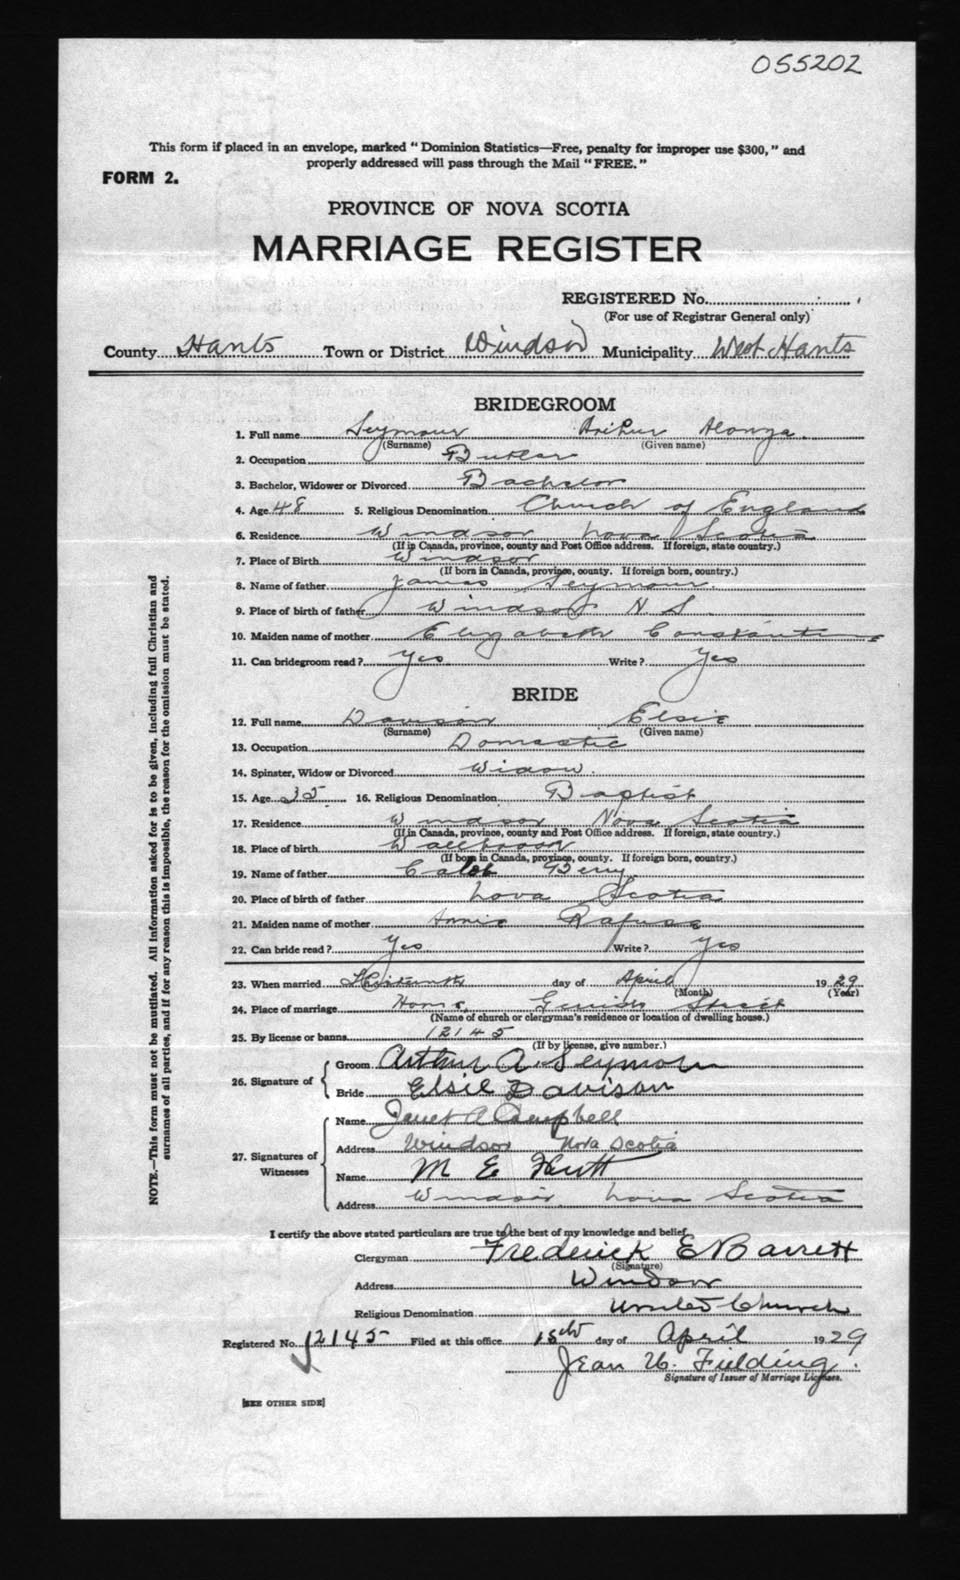 055202
This form if placed in an envelope, marked "Dominion Statistics—Free, penalty for improper use $300," and
properly addressed will pass through the Mail "FREE."
FORM 2.
PROVINCE OF NOVA SCOTIA
MARRIAGE REGISTER
REGISTERED No.
(For use of Registrar General only)
County Hants Town or District Windsor Municipality West Hants
BRIDEGROOM
1. Full name Seymour Arthur Alonza
(Surname) (Given name)
2. Occupation Butler
3. Bachelor, Widower or Divorced Bachelor
4. Age 48 5. Religious Denomination Church of England
6. Residence Windsor Nova Scotia
(If in Canada, province, county and Post Office address. If foreign, state country.)
7. Place of Birth Windsor
(If born in Canada, province, county. If foreign born, country.)
8. Name of father James Seymour
9. Place of birth of father Windsor N S
10. Maiden name of mother Elizabeth Constantine
11. Can bridegroom read? Yes Write? Yes
BRIDE
12. Full name Davison Elsie
(Surname) (Given name)
13. Occupation Domestic
14. Spinster, Widow or Divorced Widow.
15. Age 35 16. Religious Denomination Baptist
17. Residence Windsor Nova Scotia
(If in Canada, province, county and Post Office address. If foreign, state country.)
18. Place of birth
(If born in Canada, province, county. If foreign born, country.)
19. Name of father Caleb Berry
20. Place of birth of father Nova Scotia
21. Maiden name of mother Annie Rafuse
22. Can bride read? Yes Write? Yes
23. When married day of April 1929
(Month) (Year)
24. Place of marriage Home, Street
(Name of church or clergyman's residence or location of dwelling house.)
25. By license or banns 12145
(If by license, give number.)
26. Signature of
Groom Arthur A. Seymour
Bride Elsie Davison
27. Signatures of Witnesses
Name Janet A Campbell
Address Windsor Nova Scotia
Name M E Hutt
Address Windsor Nova Scotia
I certify the above stated particulars are true to the best of my knowledge and belief,
Clergyman Frederick E Barrett
(Signature)
Address Windsor
Religious Denomination United Church
Registered No. 12145 Filed at this office 18th day of April 1929
Jean U. Fielding.
Signature of Issuer of Marriage Licenses.
[SEE OTHER SIDE]
NOTE.—This form must not be mutilated. All information asked for is to be given, including full Christian and
surnames of all parties, and if for any reason this is impossible, the reason for the omission must be stated.